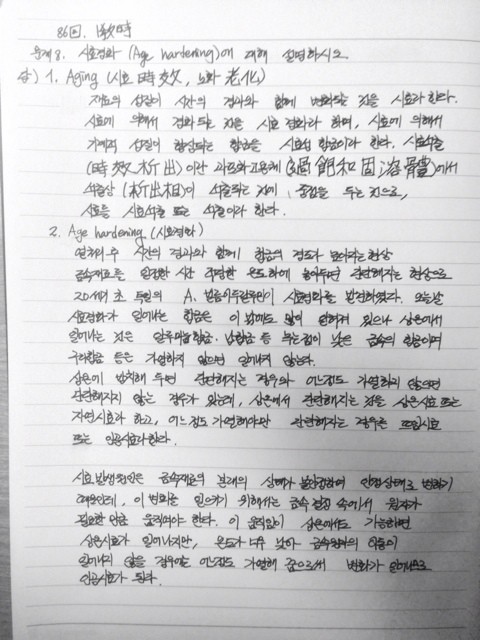 86회, 1교시
문제 8. 시효경화 (Age hardening)에 대해 설명하시오
답) 1. Aging (시효 時效, 노화 老化)
재료의 성질이 시간의 경과와 함께 변화되는 것을 시효라 한다.
시효에 의해서 경화되는 것을 시효경화라 하며, 시효에 의해서
기계적 성질이 향상되는 합금을 시효성 합금이라 한다. 시효석출
(時效析出)이란 과포화고용체(過飽和固溶體)에서
석출상(析出相)이 석출되는 것에 중점을 두는 것으로,
시효를 시효석출 또는 석출이라 한다.
2. Age hardening (시효경화)
열처리 후 시간의 경과와 함께 합금의 경도가 높아지는 현상
금속재료를 일정한 시간 적당한 온도하에 놓아두면 단단해지는 현상으로
20세기 초 독일의 A. 빌름이 두랄루민이 시효경화를 발견하였다. 오늘날
시효경화가 일어나는 합금은 이 밖에도 많이 알려져 있으나 상온에서
일어나는 것은 알루미늄합금, 납합금 등 녹는점이 낮은 금속의 합금이며
구리합금 등은 가열하지 않으면 일어나지 않는다.
상온에 방치해 두면 단단해지는 경우와 어느정도 가열하지 않으면
단단해지지 않는 경우가 있는데, 상온에서 단단해지는 것을 상온시효 또는
자연시효라 하고, 어느정도 가열해야만 단단해지는 경우를 뜨임시효
또는 인공시효라 한다.
시효발생원인은 금속재료의 본래의 상태가 불안정하여 안정상태로 변하기
때문인데, 이 변화를 일으키기 위해서는 금속 결정 속에서 원자가
필요한 만큼 움직여야 한다. 이 움직임이 상온에서도 가능하면
상온시효가 일어나지만, 온도가 너무 낮아 금속원자의 이동이
일어나지 않을 경우에는 어느정도 가열해 줌으로써 변화가 일어나므로
인공시효가 된다.